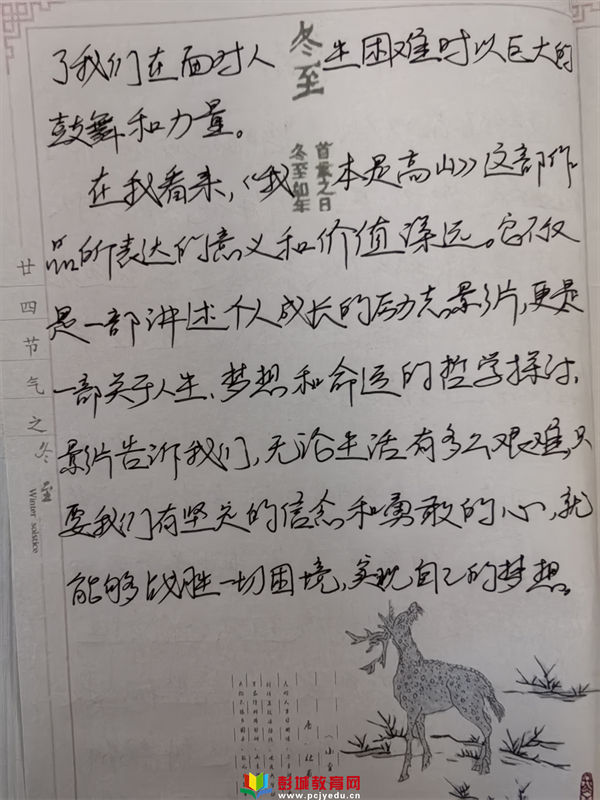 了我们在面对人生困难时以巨大的
鼓舞和力量。
在我看来，《我本是高山》这部作
品所表达的意义和价值深远。它不仅
是一部讲述个人成长的励志影片，更是
一部关于人生、梦想和命运的哲学探讨，
影片告诉我们，无论生活有多么艰难，只
要我们有坚定的信念和勇敢的心，就
能够战胜一切困境，实现自己的梦想。
冬至
冬至如年
廿四节气之冬至
Winter solstice
彭城教育网
www.pcjyedu.cn